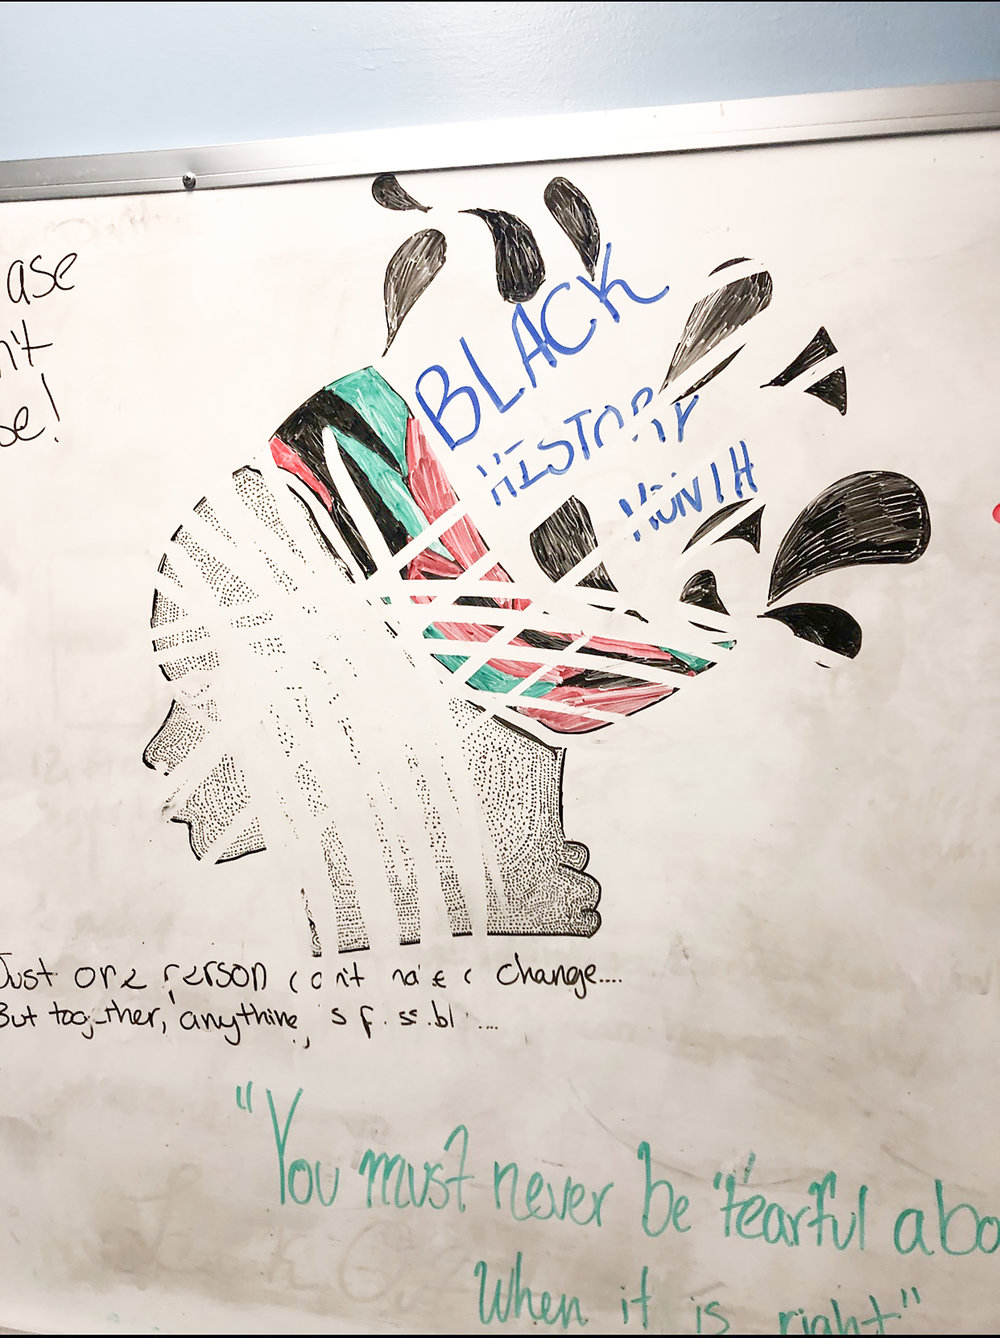 ase
n't
se!
BLACK
HISTORY
MONTH
Just one person can't make a change....
But together, anything is possible....
"You must never be fearful abo
When it is right"